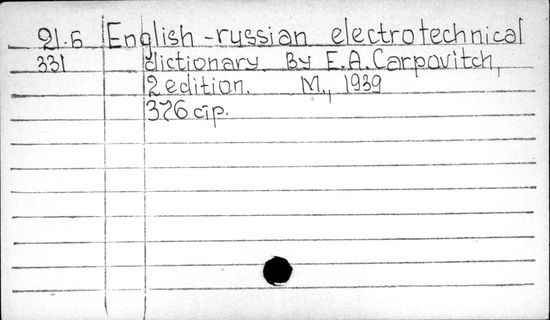 21.Б English-russian electrotechnical
331 dictionary. By E.A. Carpovitch,
2 edition. M., 1939
376 стр.